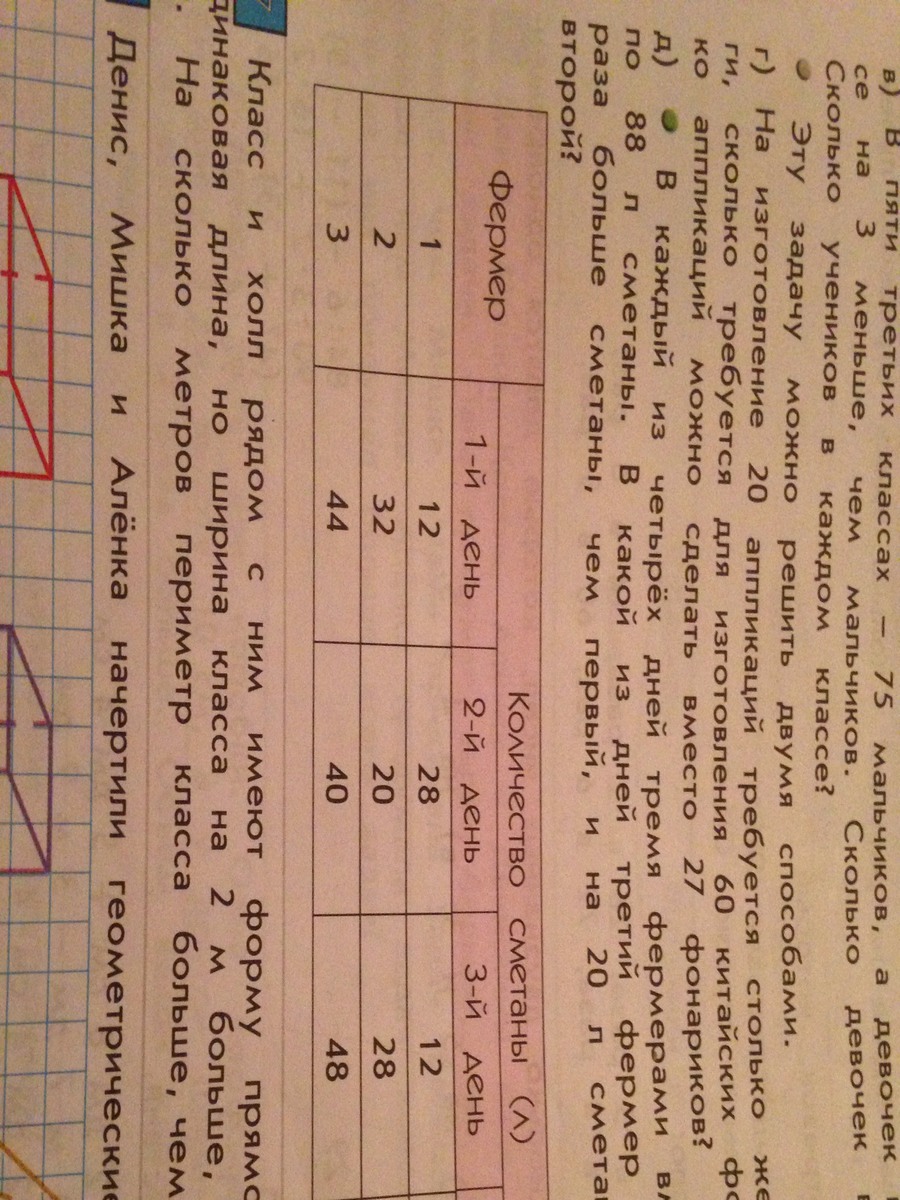 в) В пяти третьих классах – 75 мальчиков, а девочек
се на 3 меньше, чем мальчиков. Сколько девочек
Сколько учеников в каждом классе?
Эту задачу можно решить двумя способами.
г) На изготовление 20 аппликаций требуется столько же
ги, сколько требуется для изготовления 60 китайских фо
ко аппликаций можно сделать вместо 27 фонариков?
д) В каждый из четырёх дней тремя фермерами вл
по 88 л сметаны. В какой из дней третий фермер
раза больше сметаны, чем первый, и на 20 л смета
второй?
Фермер Количество сметаны (л)
1-й день 2-й день 3-й день
1 12 28 12
2 32 20 28
3 44 40 48
7 Класс и холл рядом с ним имеют форму прямо
динаковая длина, но ширина класса на 2 м больше,
. На сколько метров периметр класса больше, чем
Денис, Мишка и Алёнка начертили геометрические